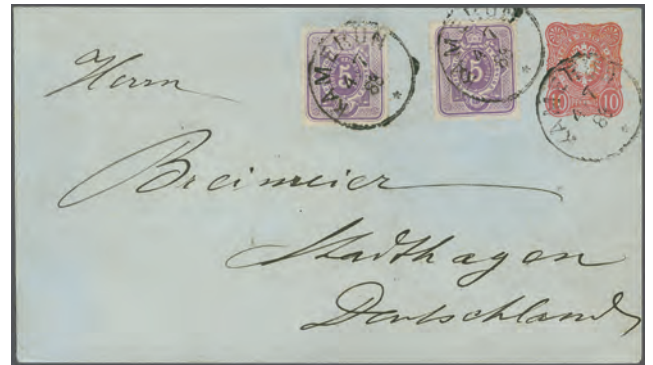 KAMERUN
4 7
88
5
KAMERUN
4 7
88
5
KAMERUN
4 7
88
10 10
Herrn
Breimeier
Stadthagen
Deutschland